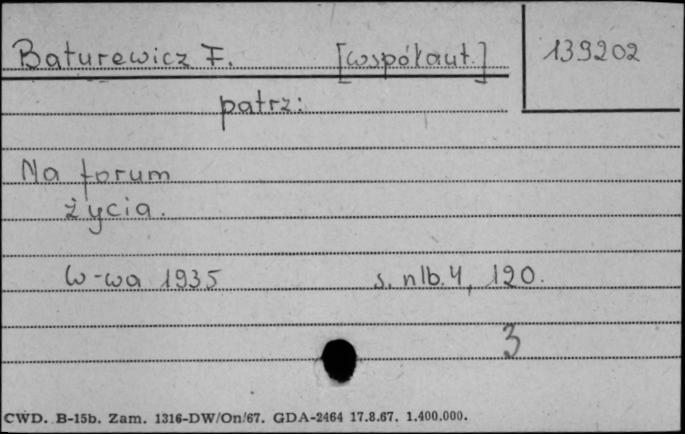 Baturewicz F. [współaut.] 139202
patrz:
Na forum
życia.
W-wa 1935 s. nlb. 4, 120.
3
CWD. B-15b. Zam. 1316-DW/On/67. GDA-2464 17.8.67. 1.400.000.